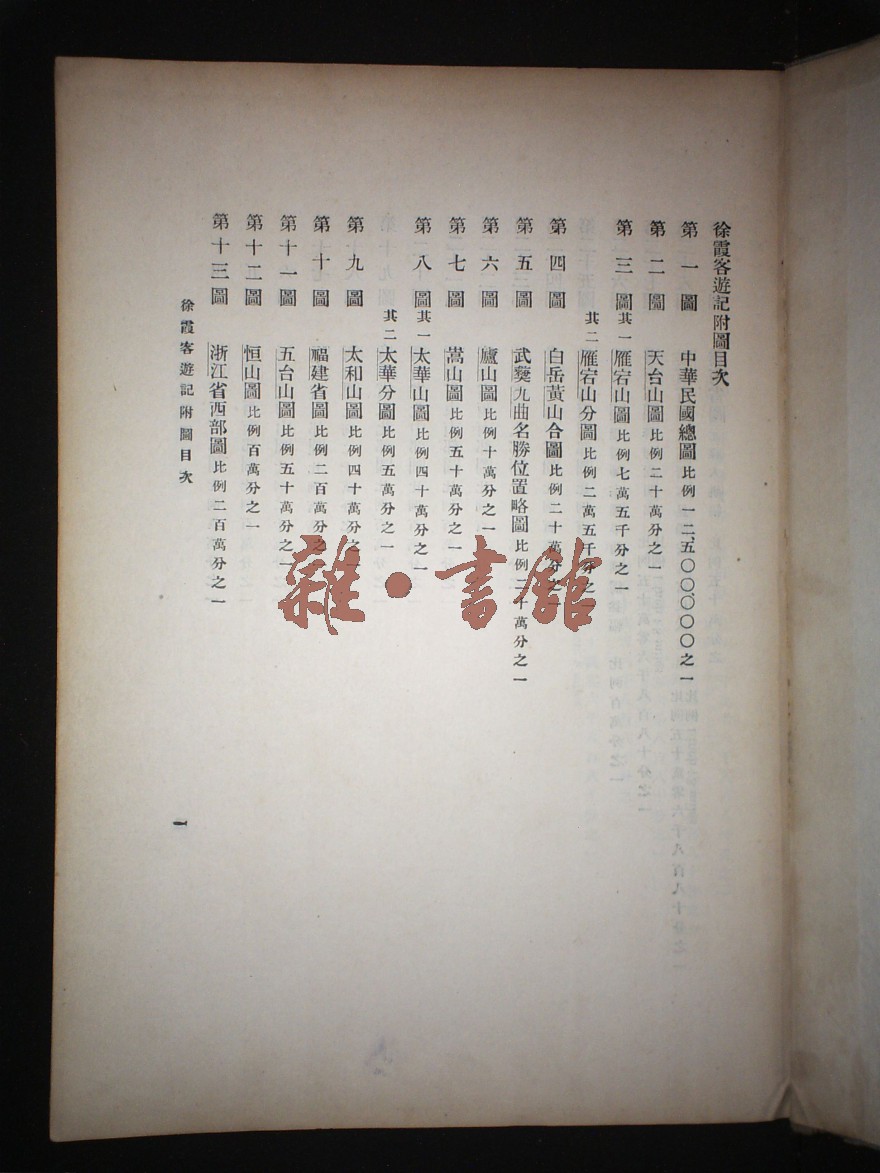 徐霞客遊記附圖目次
第一圖 中華民國總圖 比例一二、五〇〇、〇〇〇之一
第二圖 天台山圖 比例二十萬分之一
第三圖 其一 雁宕山圖 比例七萬五千分之一
其二 雁宕山分圖 比例二萬五千分之一
第四圖 白岳黃山合圖 比例二十萬分之一
第五圖 武彝九曲名勝位置略圖 比例二十萬分之一
第六圖 廬山圖 比例十萬分之一
第七圖 嵩山圖 比例五十萬分之一
第八圖 其一 太華山圖 比例四十萬分之一
其二 太華分圖 比例五萬分之一
第九圖 太和山圖 比例四十萬分之一
第十圖 福建省圖 比例二百萬分之一
第十一圖 五台山圖 比例五十萬分之一
第十二圖 恒山圖 比例百萬分之一
第十三圖 浙江省西部圖 比例二百萬分之一
徐霞客遊記附圖目次
一
雜·書館